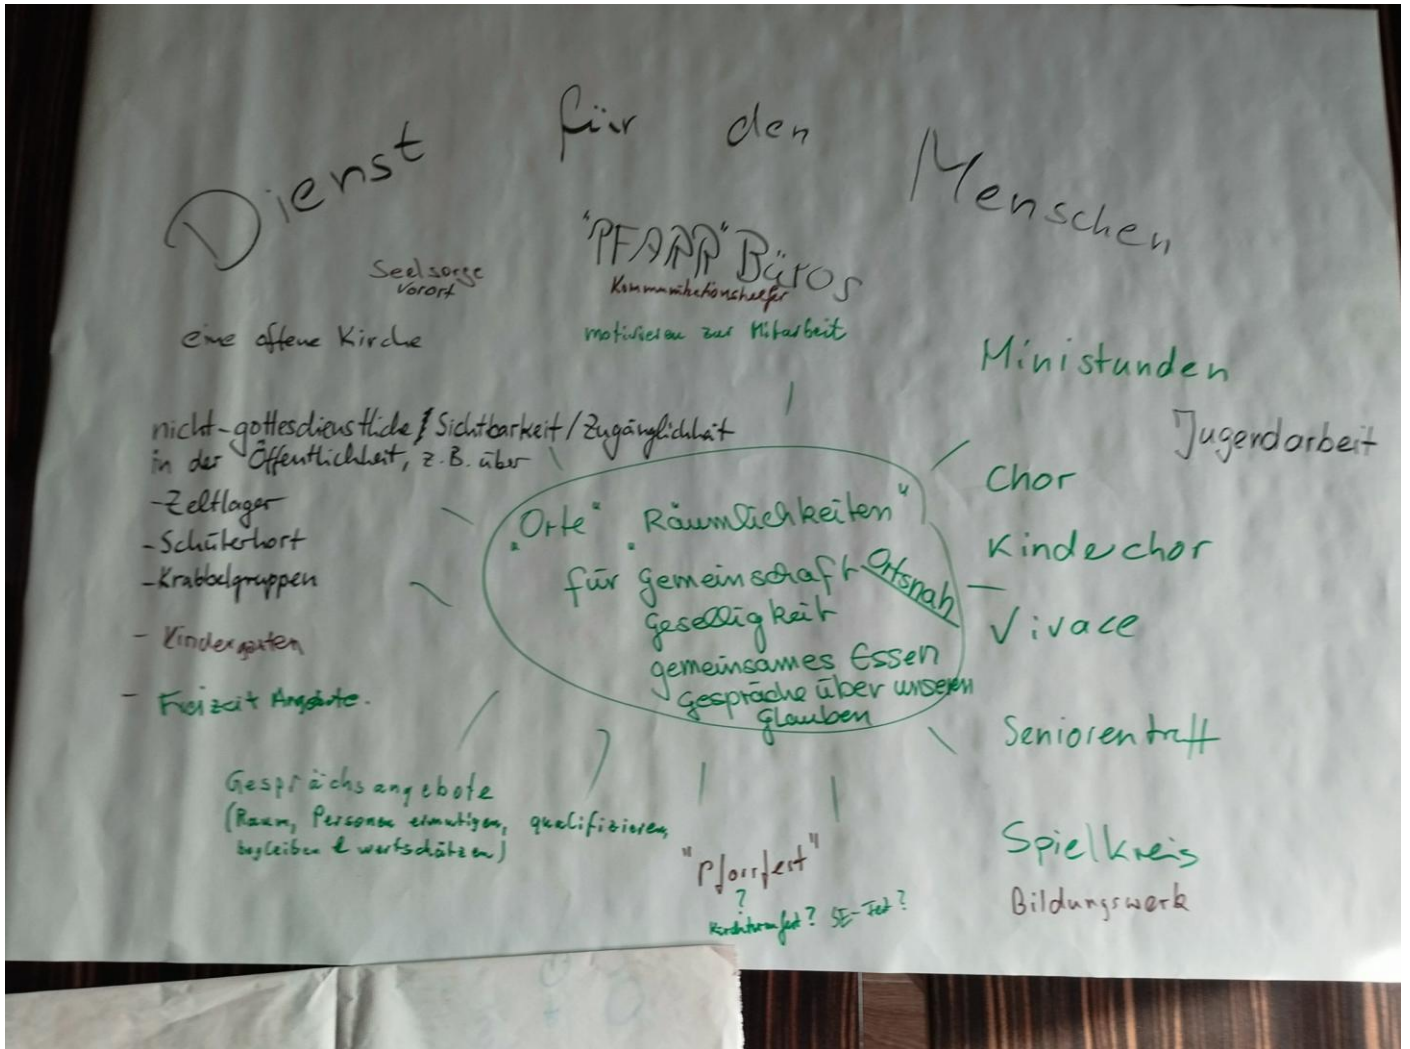 Dienst für den Menschen
"PFARR" Büros
Seelsorge
vorort
Kommunikationshelfer
eine offene Kirche
motivieren zur Mitarbeit
Ministunden
Jugendarbeit
nicht-gottesdienstliche / Sichtbarkeit / Zugänglichkeit
in der Öffentlichkeit, z.B. über
- Zeltlager
- Schülerhort
- Krabbelgruppen
- Kindergarten
- Freizeit Angebote.
"Orte" "Räumlichkeiten"
für Gemeinschaft Ortsnah
Geselligkeit
gemeinsames Essen
Gespräche über unseren
Glauben
Chor
Kinderchor
Vivace
Seniorentreff
Spielkreis
Bildungswerk
Gesprächsangebote
(Raum, Personen ermutigen, qualifizieren,
begleiten & wertschätzen)
"Pfarrfest"
?
Kirchturmfest? SE-Fest?